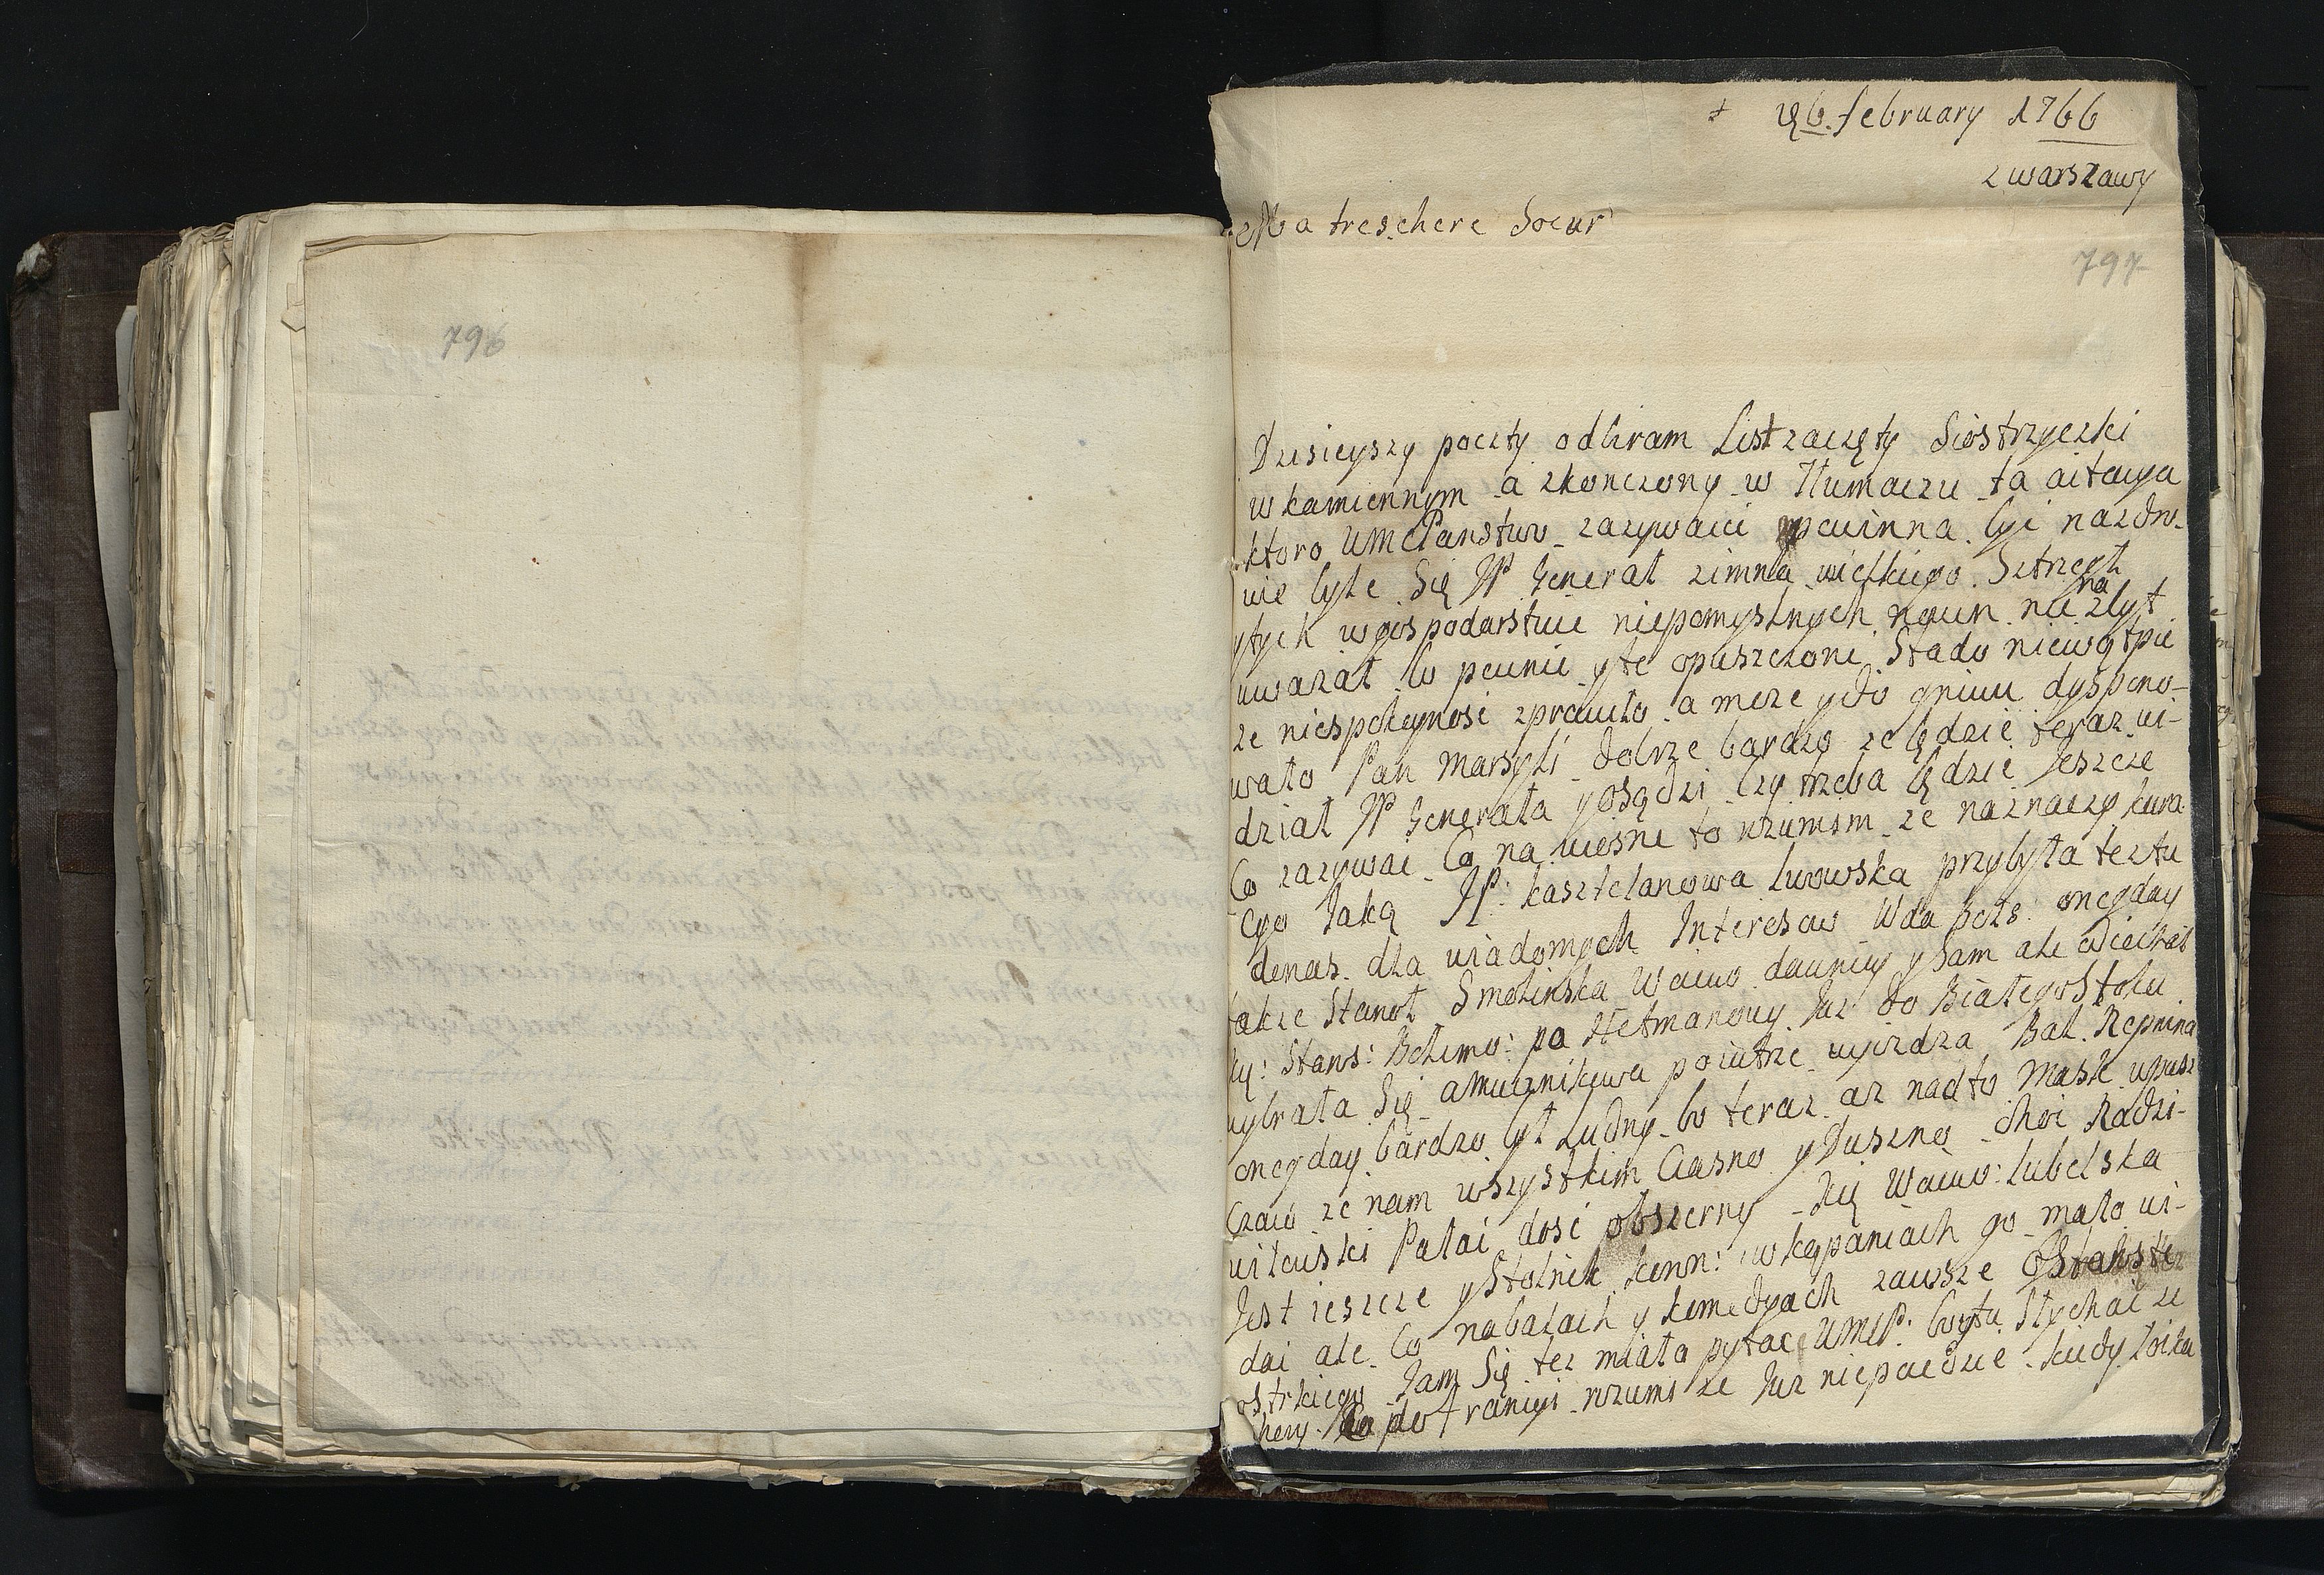 796
+ 26. february 1766
z warszawy
Ma treschere Soeur
797
Dzisieyszy poczty odbiram List zaczęty Siostrzyczki
w kamiennym a zkonczony w Tłumaczu ta aitacya
ktoro UMCPanstwo zazywaici powinna byc nazdro-
wie byle Się JP Generał zimna wielkiego Sztrzegł
ytych wgospodarstwie niepomyslnych nowin nie na zbyt
uwazał bo pewnie yte opuszczoni Stado niewątpie
ze niespokynosc zprawiło a moze ydo gniwu dyspono-
wało Pan Marsyli dobrze bardzo ze będzie teraz wi-
dział JP Generała yosądzi czy trzeba będzie Jeszcze
Co zazywac Co na wiosne to rozumim ze naznaczy kura-
cyo Jaką JP: kasztelanowa lwowska przybyła teztu
donas dla wiadomych Interesow Wda Bels: onegday
takze Stanoł Smolinska Waiwo dawniy ySam ale odiechał
ky: Stans: Bełzmo: pa Hetmanowy Juz do Białegostoku
wybrała Się aMiecznikowa poiutrze wyizdza Bal Repnina
onegday bardzo był Ludny bo teraz az nadto Mask wpusz
Czaio ze nam wszystkim Ciasno yDuszno choc Radzi-
wiłowski Pałac dosc obszerny Xię Waiwo: lubelska
Jest ieszcze yStolnik konn: wkąpaniach go mało wi-
dac ale Co nabalach y komedyach zawsze
ostrkiego Jam Się tez miała pytac UMCP: boytu Słychac ze
hery do franyi rozumi ze Juz niepoiedzie kiedy